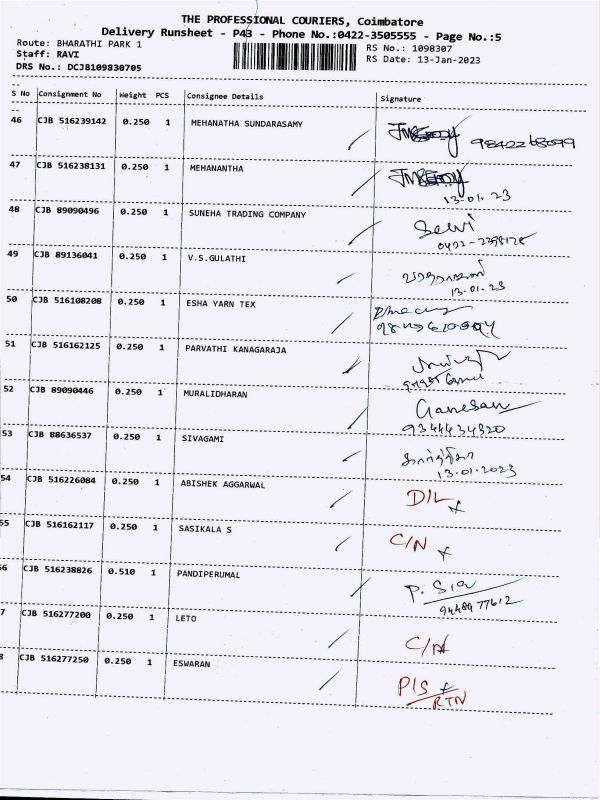 THE PROFESSIONAL COURIERS, Coimbatore
Delivery Runsheet - P43 - Phone No.:0422-3505555 - Page No.:5
Route: BHARATHI PARK 1
RS No.: 1098307
Staff: RAVI
RS Date: 13-Jan-2023
DRS No.: DCJB109830705
S No Consignment No Weight PCS Consignee Details Signature
46 CJB 516239142 0.250 1 MEHANATHA SUNDARASAMY
9842268099
47 CJB 516238131 0.250 1 MEHANANTHA
13.01.23
48 CJB 89090496 0.250 1 SUNEHA TRADING COMPANY Selvi
49 CJB 89136041 0.250 1 V.S.GULATHI
13.01.23
50 CJB 516108208 0.250 1 ESHA YARN TEX
51 CJB 516162125 0.250 1 PARVATHI KANAGARAJA
52 CJB 89090446 0.250 1 MURALIDHARAN Ganesan
9344434320
53 CJB 88636537 0.250 1 SIVAGAMI
13.01.2023
54 CJB 516226084 0.250 1 ABISHEK AGGARWAL D/L
55 CJB 516162117 0.250 1 SASIKALA S C/N
56 CJB 516238826 0.510 1 PANDIPERUMAL P. Siva
7 CJB 516277200 0.250 1 LETO C/N
8 CJB 516277250 0.250 1 ESWARAN P/S
RTN